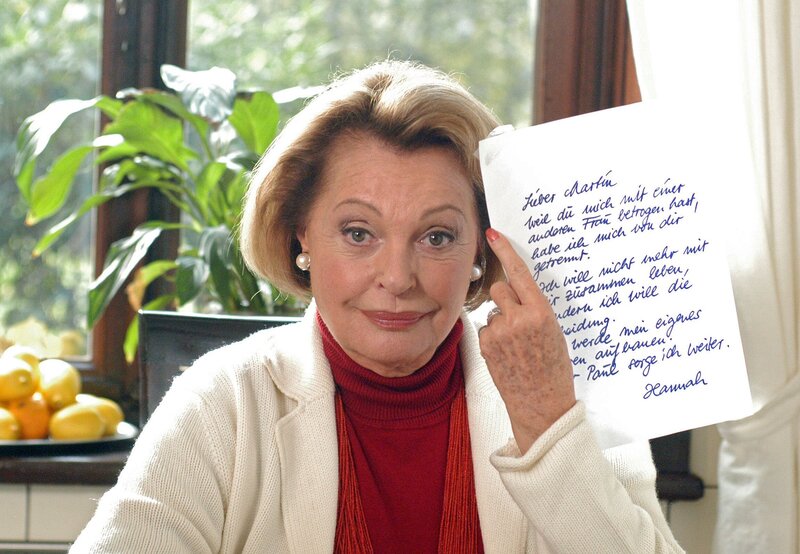 Lieber Martin
weil du mich mit einer
anderen Frau betrogen hast,
habe ich mich von dir
getrennt.
Ich will nicht mehr mit
zusammen leben,
ich will die
werde mein eigenes
aufbauen.
Paul sorge ich weiter.
Hannah